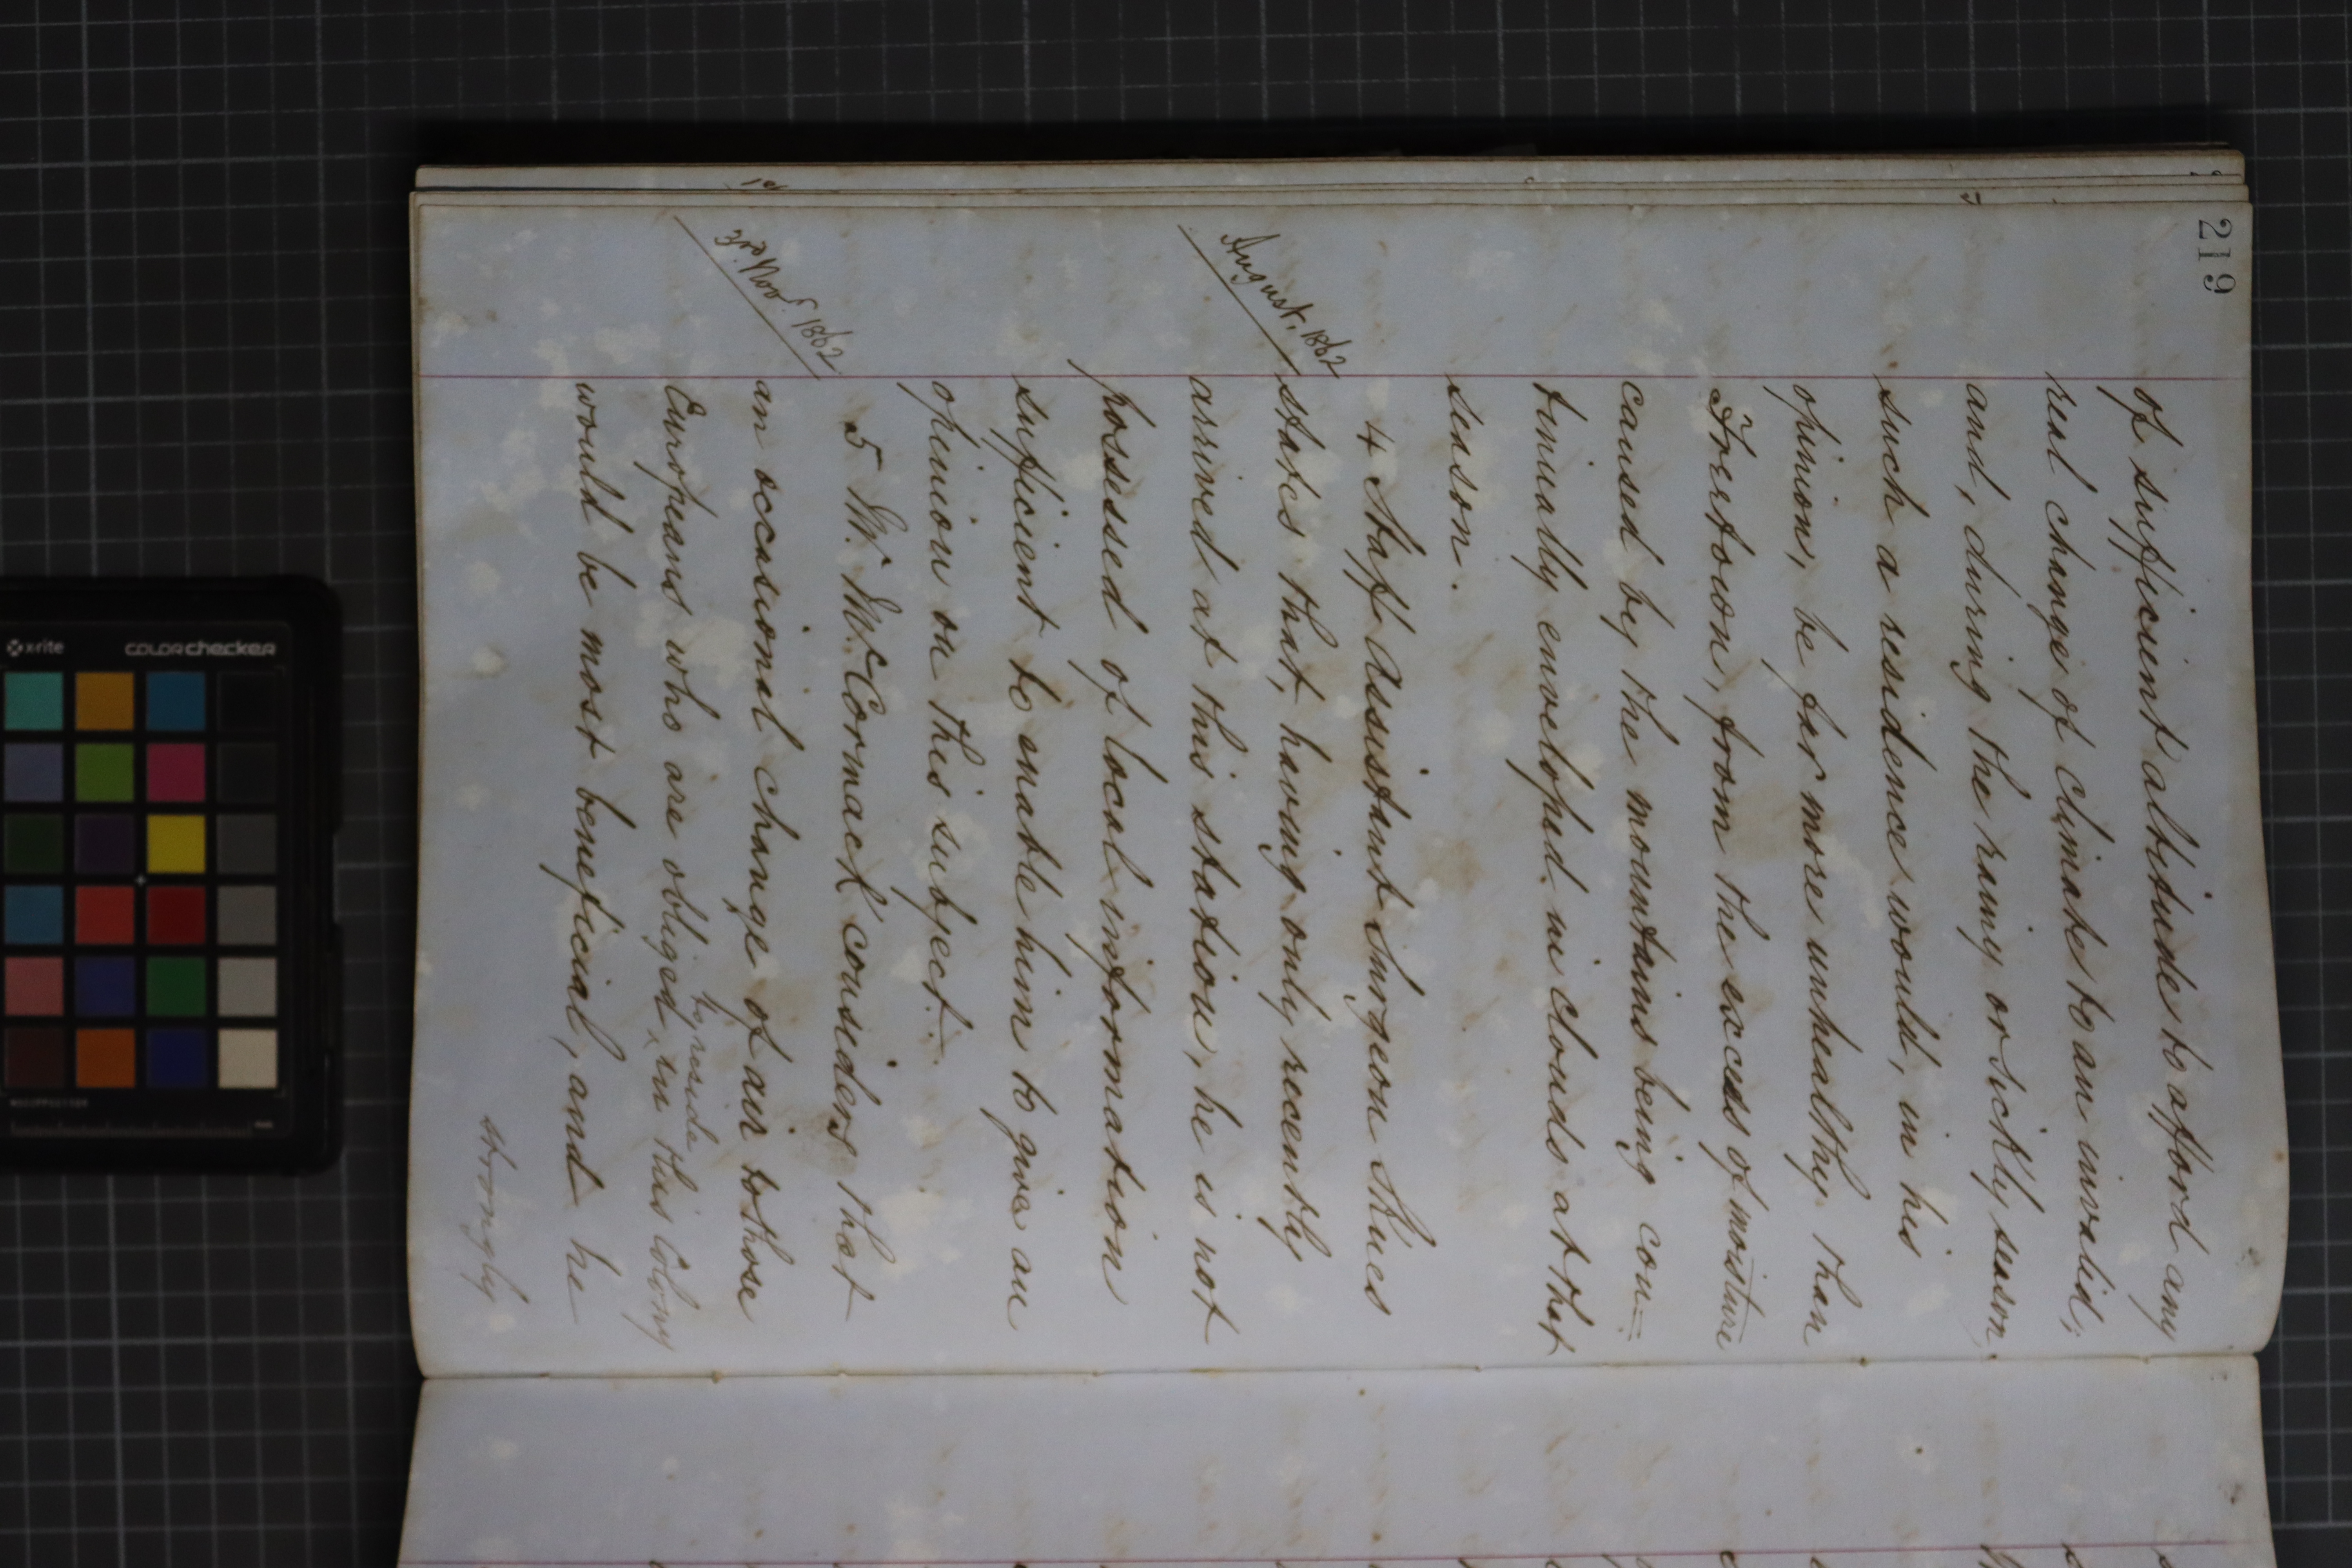 219
of sufficient altitude to afford any
real change of climate to an invalid;
and, during the rainy or sickly season,
such a residence would, in his
opinion, be far more unhealthy than
Freetown, from the excess of moisture
caused by the mountains being con=
tinually enveloped in clouds at that
season.
4 Staff Assistant Surgeon Thues
August, 1862
states that, having only recently
arrived at this station, he is not
possessed of local information
sufficient to enable him to give an
opinion on this subject.
5 Mr. McCormack considers that
3rd Novr. 1862
an occasional change of air to those
Europeans who are obliged to reside in this Colony
would be most beneficial, and he
strongly
x-rite
colorchecker